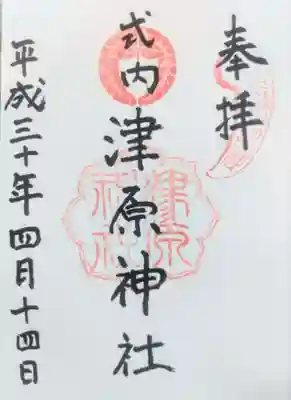 奉拝
式内 津原神社
平成三十年四月十四日
津原神社